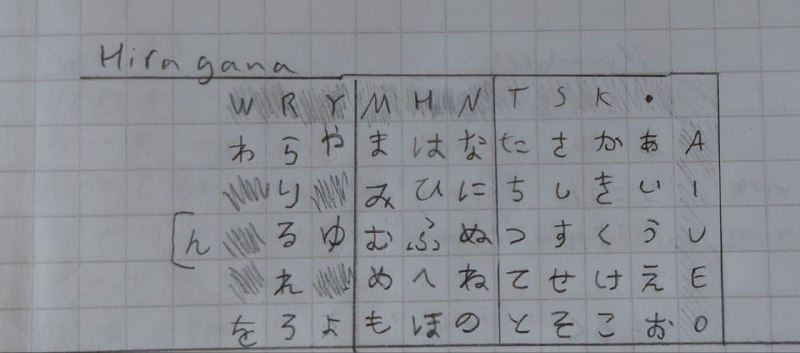 Hiragana
W R Y M H N T S K •
わ ら や ま は な た さ か あ A
り み ひ に ち し き い I
ん る ゆ む ふ ぬ つ す く う U
れ め へ ね て せ け え E
を ろ よ も ほ の と そ こ お O